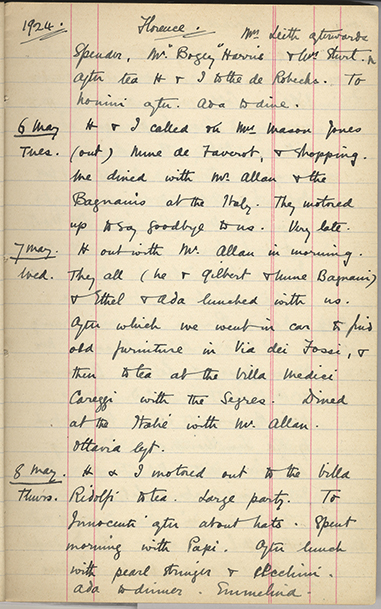 1924. Florence. Mrs Leith afterwards
Spender, Mr "Bogey" Harris & Mrs Sturt.
After tea H & I to the de Robecks. To
Nonini after. Ada to dine.
6 May H & I called on Mrs Mason Jones
Tues. (out) Mme de Faverot, & shopping.
We dined with Mr. Allan & the
Bagnanis at the Italy. They motored
up to say goodbye to us. Very late.
7 May. H out with Mr. Allan in morning.
Wed. They all (he & Gilbert & Mme Bagnani)
& Ethel & Ada lunched with us.
After which we went in car to find
old furniture in Via dei Fossi, &
then to tea at the Villa Medici
Careggi with the Segres. Dined
at the Italie with Mr. Allan.
Ottavia left.
8 May. H & I motored out to the Villa
Thurs. Ridolfi to tea. Large party. To
Innocenti after about hats. Spent
morning with Papi. After lunch
with pearl stringer &
Ada to dinner. Emmelina.